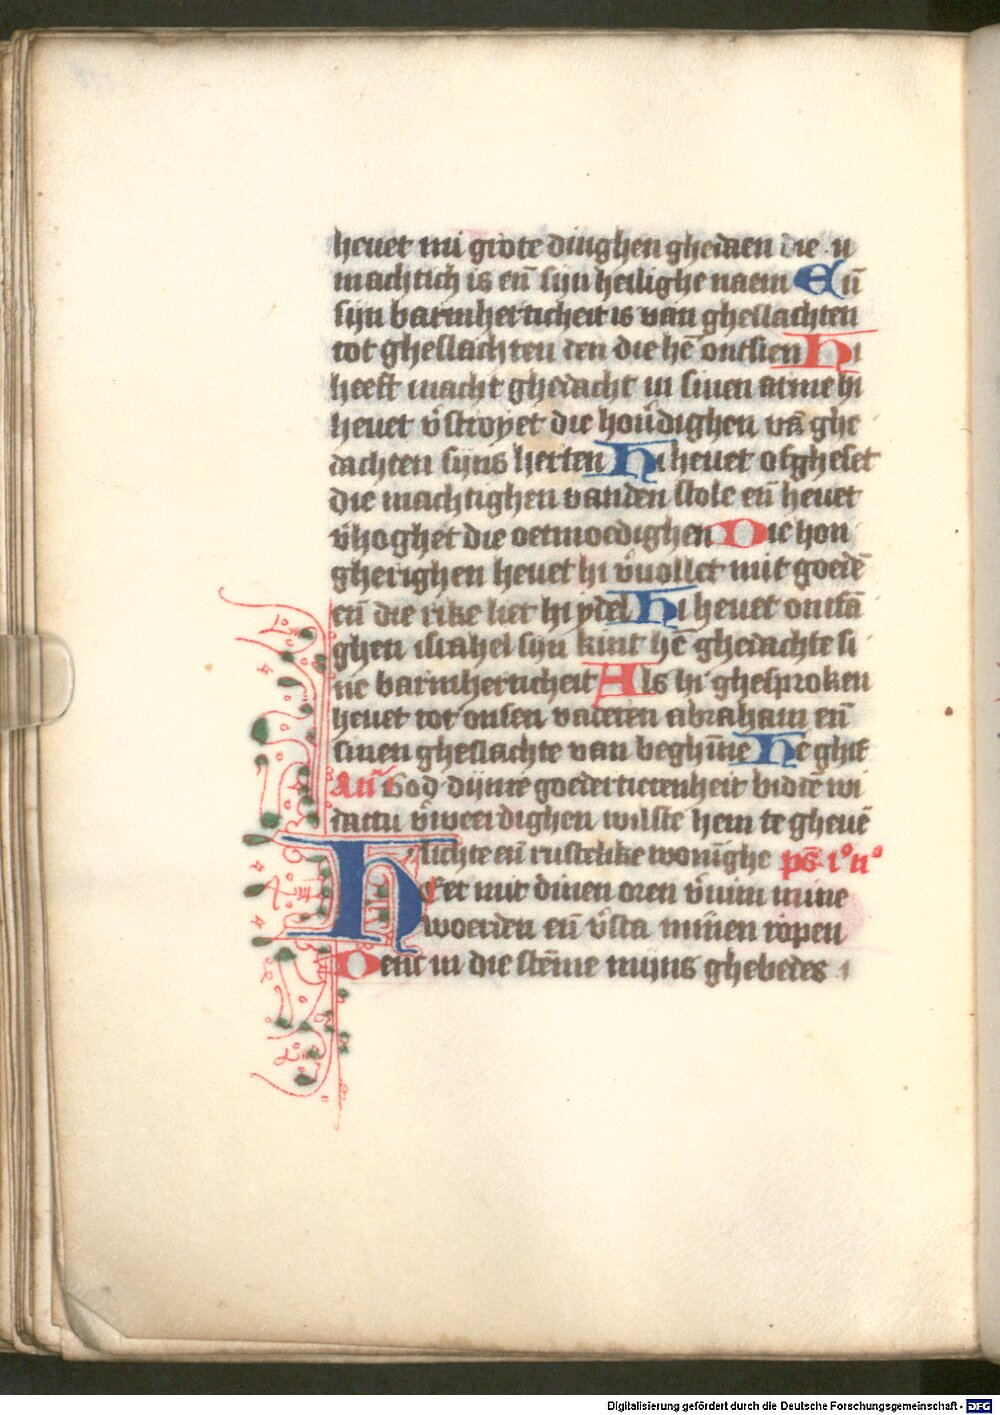 heuet mi grote dinghen ghedaen die
machtich is eñ sijn heilighe naem Eñ
sijn barmherticheit is van gheslachten
tot gheslachten den die hē ontsien Hi
heeft macht ghedacht in sinen arme hi
heuet v̾stroyet die hou̾dighen vā ghe
dachten sijns herten Hi heuet ofgheset
die machtighen vanden stole eñ heuet
v̾hoghet die oetmoedighen Die hon
gherighen heuet hi v̾uollet mit goedē
eñ die rike liet hi ydel Hi heuet ontfā
ghen israhel sijn kint hē ghedachte si
nē barmherticheit Als hi ghesproken
heuet tot onsen vaderen abraham eñ
sinen gheslachte van beghīne
God dijnre goedertierenheit biddē wi
dattu v̾weerdighen wilste hem te gheuē
lichte eñ rustelike wonīghe
Heer mit dinen oren v̾nim mine
woerden eñ v̾sta minen ropen
Denc in die stēme mijns ghebedes
Digitalisierung gefördert durch die Deutsche Forschungsgemeinschaft - DFG